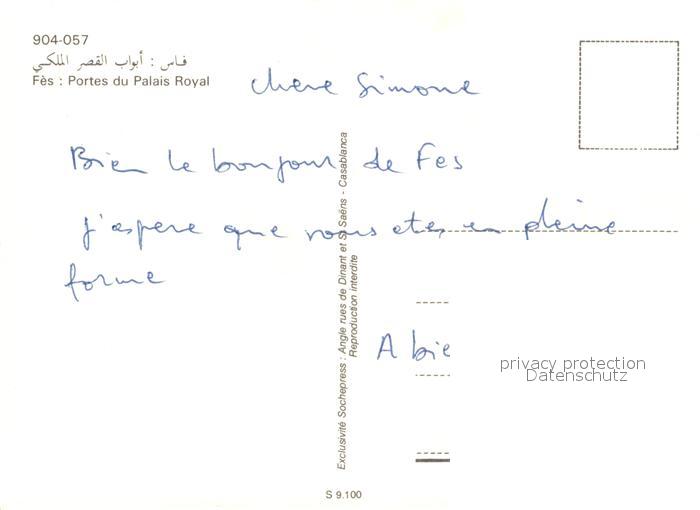 904-057
فاس : أبواب القصر الملكي
Fès : Portes du Palais Royal
chere Simone
Bien le bonjour de Fes
j'espere que vous etes en pleine
forme
A bie
privacy protection
Datenschutz
Exclusivité Sochepress : Angle rues de Dinant et St Saëns - Casablanca
Reproduction interdite
S 9.100